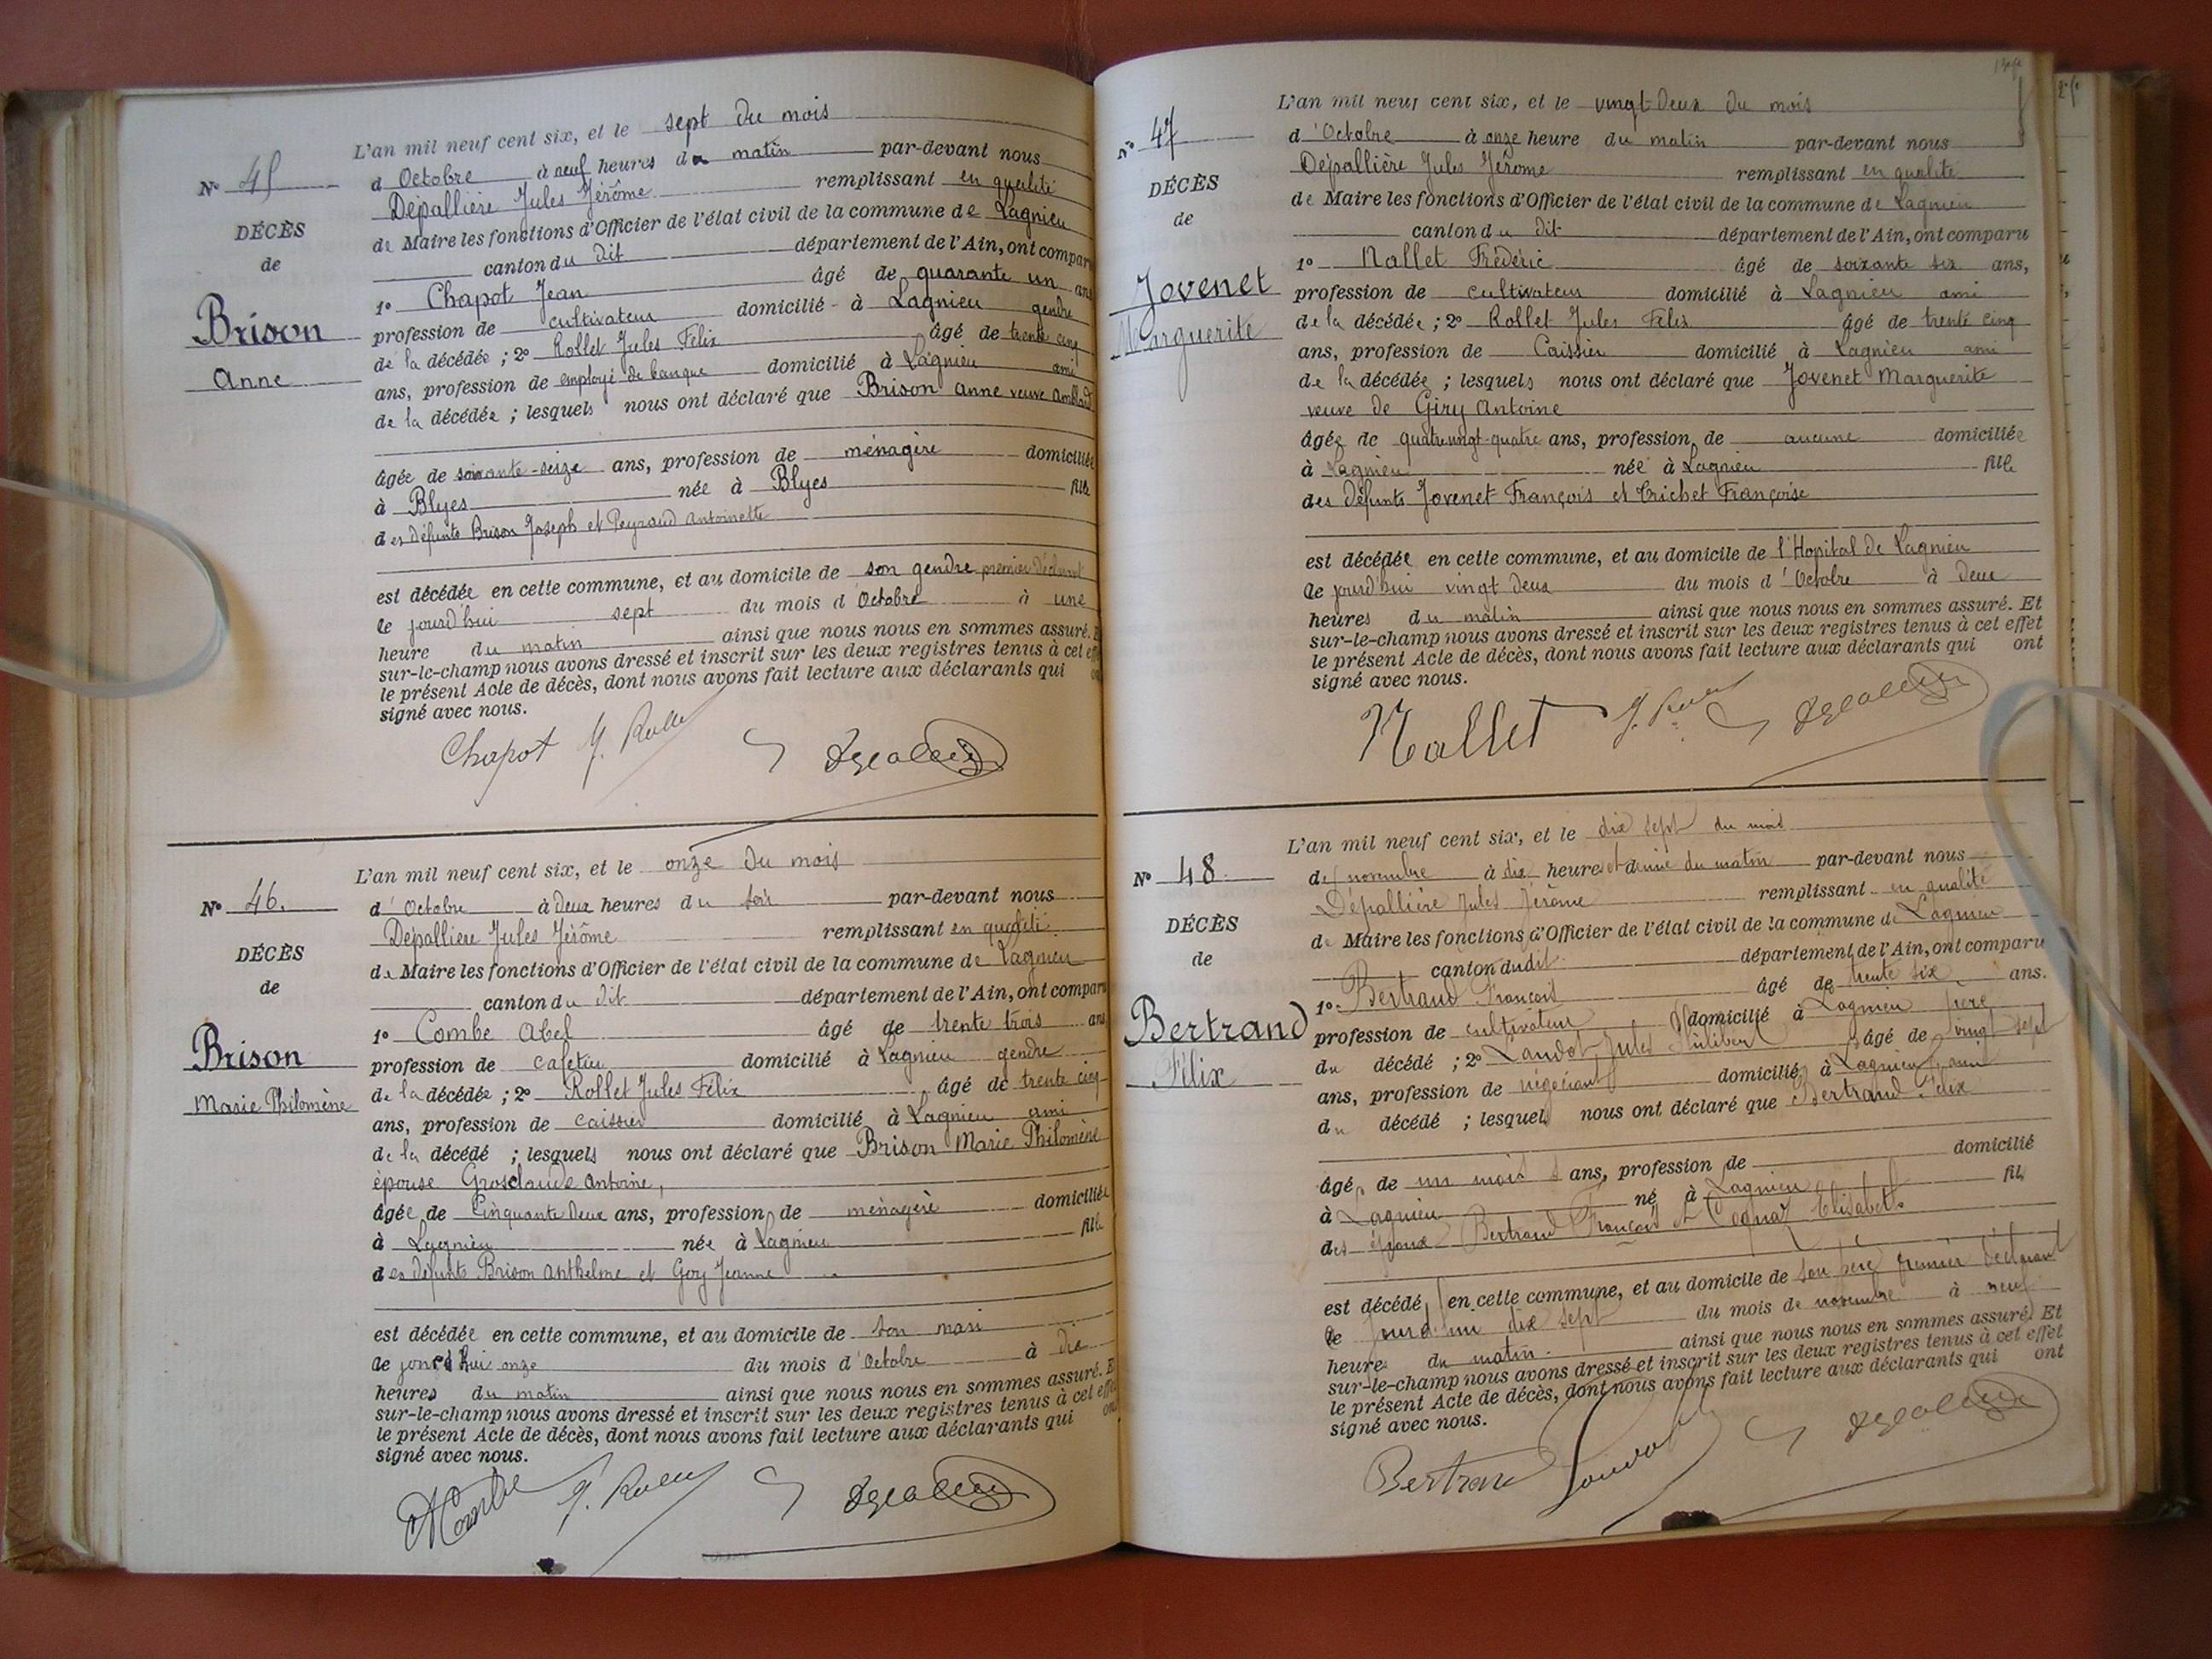 L'an mil neuf cent six, et le sept du mois
N° 45
d'Octobre à neuf heures du matin par-devant nous
Dépallière Jules Jérôme remplissant en qualité
DÉCÈS
de Maire les fonctions d'Officier de l'état civil de la commune de Lagnieu
de
canton du dit département de l'Ain, ont comparu
1° Chapot Jean âgé de quarante un ans
Brison
profession de cultivateur domicilié à Lagnieu gendre
de la décédée ; 2° Rollet Jules Félix âgé de trente cinq
Anne
ans, profession de employé de banque domicilié à Lagnieu ami
de la décédée ; lesquels nous ont déclaré que Brison Anne veuve
âgée de soixante-seize ans, profession de ménagère domiciliée
à Blyes née à Blyes fille
des défunts Brison Joseph et Peyraud Antoinette
est décédée en cette commune, et au domicile de son gendre premier déclarant
le jourd'hui sept du mois d'Octobre à une
heure du matin ainsi que nous nous en sommes assuré. Et
sur-le-champ nous avons dressé et inscrit sur les deux registres tenus à cet effet
le présent Acte de décès, dont nous avons fait lecture aux déclarants qui ont
signé avec nous.
Chapot
L'an mil neuf cent six, et le onze du mois
N° 46.
d'Octobre à deux heures du soir par-devant nous
Dépallière Jules Jérôme remplissant en qualité
DÉCÈS
de Maire les fonctions d'Officier de l'état civil de la commune de Lagnieu
de
canton du dit département de l'Ain, ont comparu
1° Combe Abel âgé de trente trois ans
Brison
profession de cafetier domicilié à Lagnieu gendre
de la décédée ; 2° Rollet Jules Félix âgé de trente cinq
Marie Philomène
ans, profession de caissier domicilié à Lagnieu ami
de la décédé ; lesquels nous ont déclaré que Brison Marie Philomène
épouse Grosclaude Antoine,
âgée de Cinquante deux ans, profession de ménagère domiciliée
à Lagnieu née à Lagnieu fille
des défunts Brison Anthelme et Goy Jeanne
est décédée en cette commune, et au domicile de son mari
le jourd'hui onze du mois d'Octobre à dix
heures du matin ainsi que nous nous en sommes assuré. Et
sur-le-champ nous avons dressé et inscrit sur les deux registres tenus à cet effet
le présent Acte de décès, dont nous avons fait lecture aux déclarants qui ont
signé avec nous.
L'an mil neuf cent six, et le vingt-deux du mois
N° 47
d'Octobre à onze heure du matin par-devant nous
Dépallière Jules Jérome remplissant en qualité
DÉCÈS
de Maire les fonctions d'Officier de l'état civil de la commune de Lagnieu
de
canton du dit département de l'Ain, ont comparu
1° Nallet Frédéric âgé de soixante six ans,
Jovenet
profession de cultivateur domicilié à Lagnieu ami
de la décédée ; 2° Rollet Jules Félix âgé de trente cinq
Marguerite
ans, profession de Caissier domicilié à Lagnieu ami
de la décédée ; lesquels nous ont déclaré que Jovenet Marguerite
veuve de Giry Antoine
âgée de quatrevingt-quatre ans, profession de aucune domiciliée
à Lagnieu née à Lagnieu fille
des défunts Jovenet François et Trichet Françoise
est décédée en cette commune, et au domicile de l'Hopital de Lagnieu
le jourd'hui vingt deux du mois d'Octobre à deux
heures du matin ainsi que nous nous en sommes assuré. Et
sur-le-champ nous avons dressé et inscrit sur les deux registres tenus à cet effet
le présent Acte de décès, dont nous avons fait lecture aux déclarants qui ont
signé avec nous.
Nallet
L'an mil neuf cent six, et le dix sept du mois
N° 48
de novembre à dix heures et demie du matin par-devant nous
Dépallière Jules Jérôme remplissant en qualité
DÉCÈS
de Maire les fonctions d'Officier de l'état civil de la commune de Lagnieu
de
canton dudit département de l'Ain, ont comparu
1° Bertrand François âgé de trente six ans.
Bertrand
profession de cultivateur domicilié à Lagnieu père
du décédé ; 2° Jules Philibert âgé de vingt sept
Félix
ans, profession de négociant domicilié à Lagnieu ami
du décédé ; lesquels nous ont déclaré que Bertrand Félix
âgé de un mois ans, profession de domicilié
à Lagnieu né à Lagnieu fils
des époux Bertrand François et Elisabeth
est décédé en cette commune, et au domicile de son père premier déclarant
le jourd'hui dix sept du mois de novembre à neuf
heures du matin. ainsi que nous nous en sommes assuré. Et
sur-le-champ nous avons dressé et inscrit sur les deux registres tenus à cet effet
le présent Acte de décès, dont nous avons fait lecture aux déclarants qui ont
signé avec nous.
Bertrand